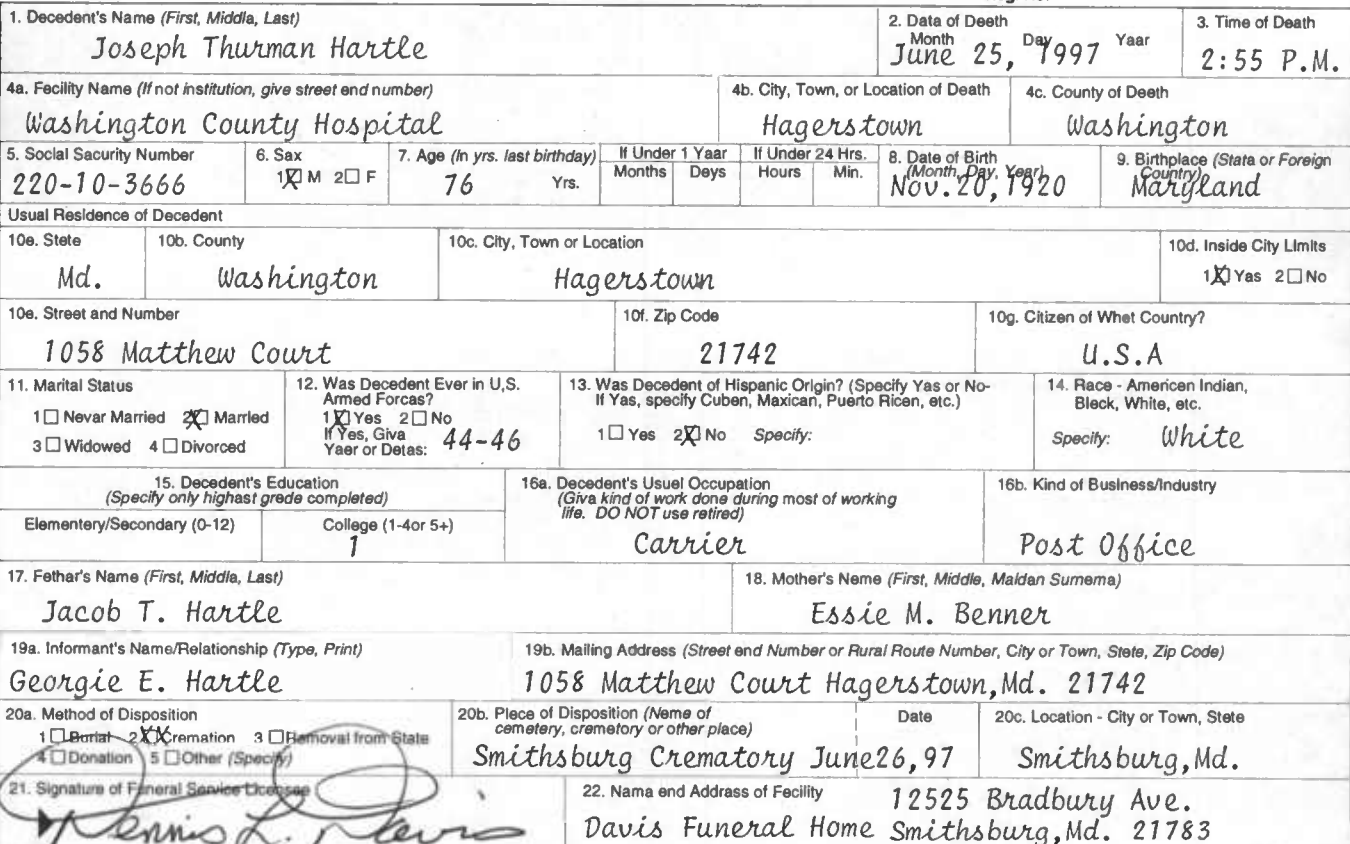 1. Decedent's Name (First, Middla, Last)
Joseph Thurman Hartle
2. Data of Deeth
Month Day Yaar
June 25, 1997
3. Time of Death
2:55 P.M.
4a. Fecility Name (If not institution, give street end number)
Washington County Hospital
4b. City, Town, or Location of Death
Hagerstown
4c. County of Deeth
Washington
5. Soclal Sacurity Number
220-10-3666
6. Sax
1☒ M 2☐ F
7. Age (In yrs. last birthday)
76 Yrs.
If Under 1 Yaar
Months Deys
If Under 24 Hrs.
Hours Min.
8. Date of Birth
(Month, Day, Year)
Nov. 20, 1920
9. Birthplace (Stata or Foreign Country)
Maryland
Usual Residence of Decedent
10e. Stete
Md.
10b. County
Washington
10c. City, Town or Location
Hagerstown
10d. Inside City Limits
1☒ Yas 2☐ No
10e. Street and Number
1058 Matthew Court
10f. Zip Code
21742
10g. Citizen of Whet Country?
U.S.A
11. Marital Status
1☐ Nevar Married 2☒ Married
3☐ Widowed 4☐ Divorced
12. Was Decedent Ever in U,S.
Armed Forcas?
1☒ Yes 2☐ No
If Yes, Giva
Yaer or Detas: 44-46
13. Was Decedent of Hispanic Orlgin? (Specify Yas or No-
If Yas, specify Cuben, Maxican, Puerto Ricen, etc.)
1☐ Yes 2☒ No Specify:
14. Race - American Indian,
Bleck, White, etc.
Specify: White
15. Decedent's Education
(Specify only highast grede completed)
Elementery/Secondary (0-12)
College (1-4or 5+)
1
16a. Decedent's Usuel Occupation
(Giva kind of work done during most of working
life. DO NOT use retired)
Carrier
16b. Kind of Business/Industry
Post Office
17. Fethar's Name (First, Middla, Last)
Jacob T. Hartle
18. Mother's Neme (First, Middle, Maldan Surnema)
Essie M. Benner
19a. Informant's Name/Relationship (Type, Print)
Georgie E. Hartle
19b. Mailing Address (Street end Number or Rural Route Number, City or Town, Stete, Zip Code)
1058 Matthew Court Hagerstown,Md. 21742
20a. Method of Disposition
1☐ Burial 2☒ Cremation 3☐ Removal from State
4☐ Donation 5☐ Other (Specify)
20b. Plece of Disposition (Neme of
cemetery, cremetory or other place)
Date
Smithsburg Crematory June26,97
20c. Location - City or Town, Stete
Smithsburg,Md.
21. Signature of Funeral Service Licensee
Dennis L. Davis
22. Nama end Addrass of Fecility
12525 Bradbury Ave.
Davis Funeral Home Smithsburg,Md. 21783